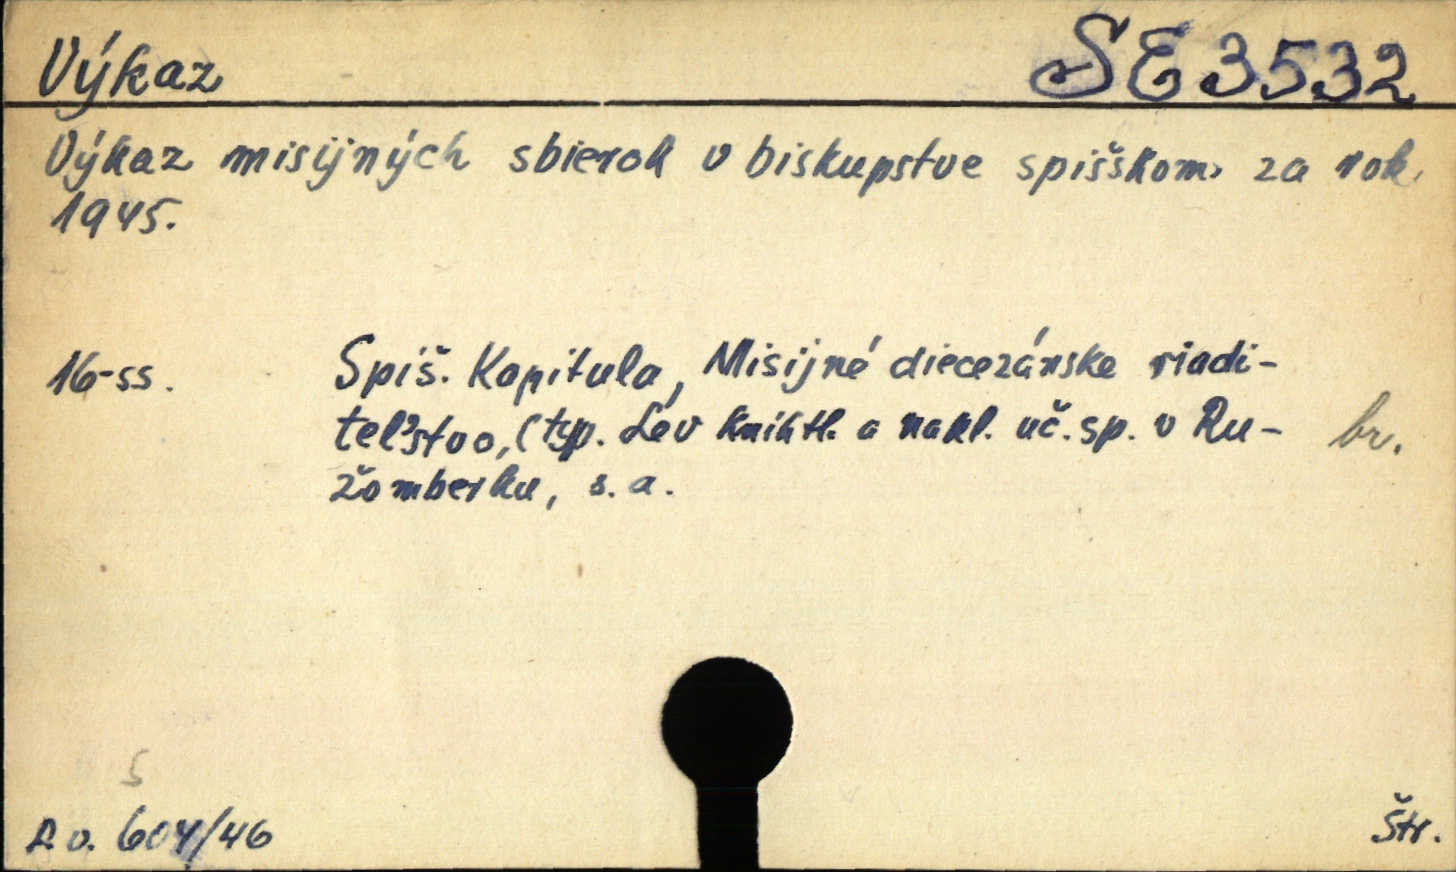 Výkaz SE 3532
Výkaz misijných sbierok v biskupstve spišskom za rok
1945.
16-ss. Spiš. Kapitula, Misijné diecezánske riadi-
teľstvo, (typ. Lev kníhtl. a nakl. úč. sp. v Ru- br.
žomberku, s. a.
5
D. v. 604/46 Štr.